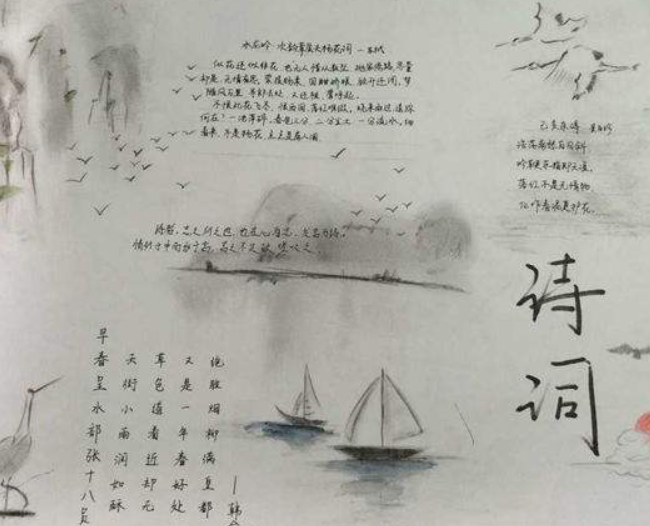 水龙吟 次韵章质夫杨花词 —苏轼
似花还似非花 也无人惜从教坠 抛家傍路 思量
却是 无情有思 萦损柔肠 困酣娇眼 欲开还闭 梦
随风万里 寻郎去处 又还被 莺呼起
不恨此花飞尽 恨西园 落红难缀 晓来雨过 遗踪
何在 一池萍碎 春色三分 二分尘土 一分流水 细
看来 不是杨花 点点是离人泪
己亥杂诗 龚自珍
浩荡离愁白日斜
吟鞭东指即天涯
落红不是无情物
化作春泥更护花
诗者,志之所之也,在心为志,发言为诗,
情动于中而形于言,言之不足故嗟叹之
诗词
早春呈水部张十八员
天街小雨润如酥
草色遥看近却无
又是一年春好处
绝胜烟柳满皇都
—韩